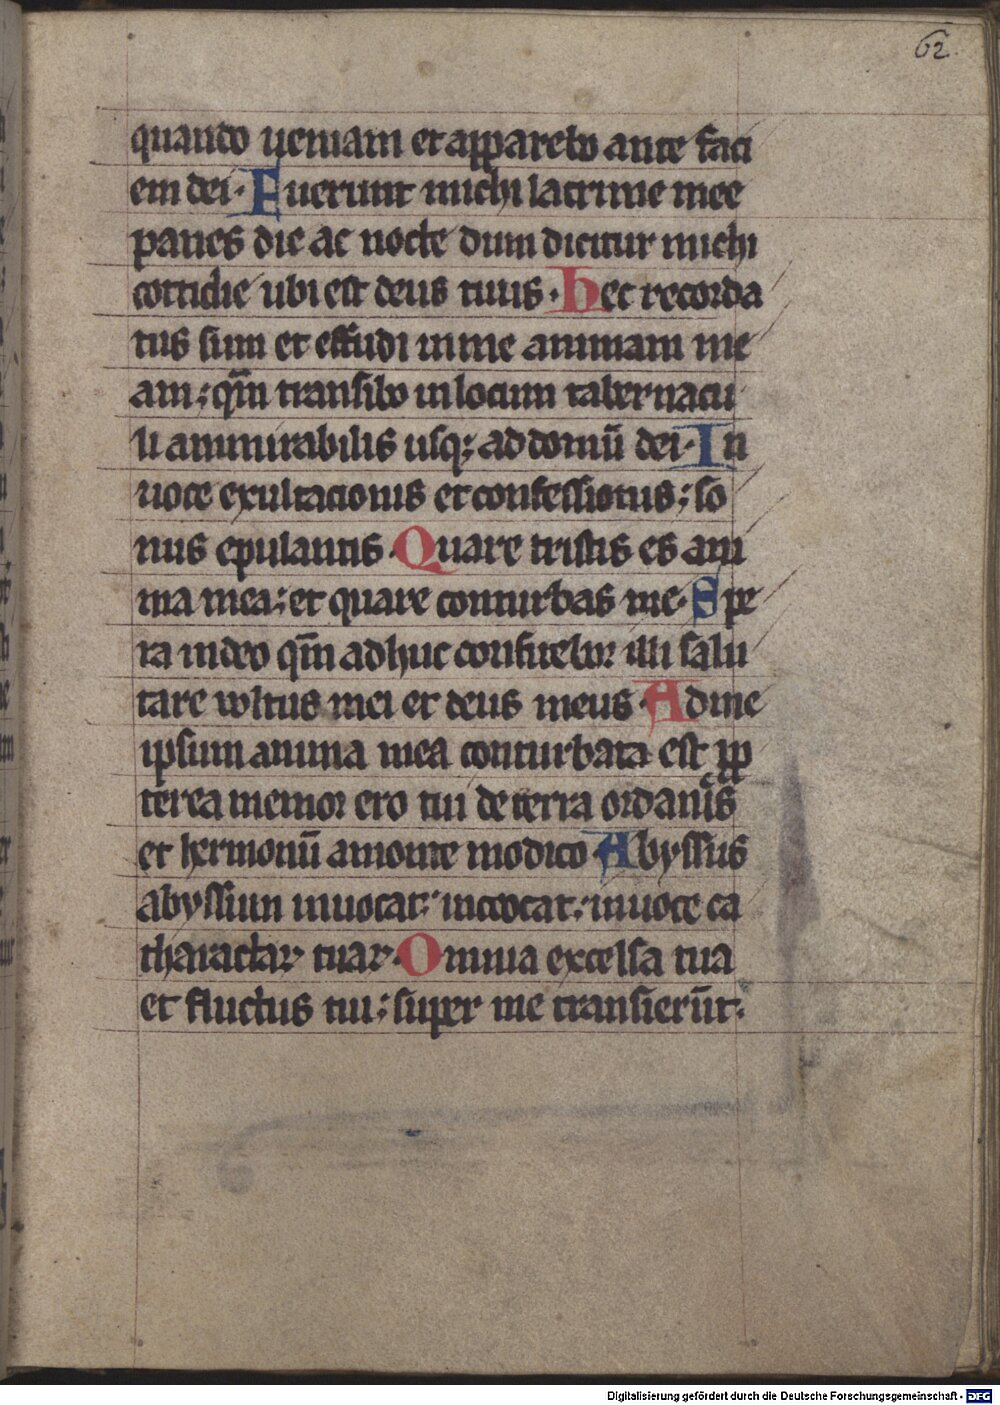 62
quando ueniam et apparebo ante faci
em dei. Fuerunt michi lacrime mee
panes die ac nocte dum dicitur michi
cottidie ubi est deus tuus. Hec recorda
tus sum et effudi in me animam me
am; qm̄ transibo in locum tabernacu
li ammirabilis usq; ad domū dei. In
uoce exultacionis et confessionis; so
nus epulantis. Quare tristis es ani
ma mea; et quare conturbas me. Spe
ra in deo qm̄ adhuc confitebor illi salu
tare vvltus mei et deus meus. Ad me
ipsum anima mea conturbata est pp
terea memor ero tui de terra iordanis
et hermonū a monte modico. Abyssus
abyssum inuocat; in uoce ca
tharactar tuar. Omnia excelsa tua
et fluctus tui; super me transierūt.
Digitalisierung gefördert durch die Deutsche Forschungsgemeinschaft - DFG